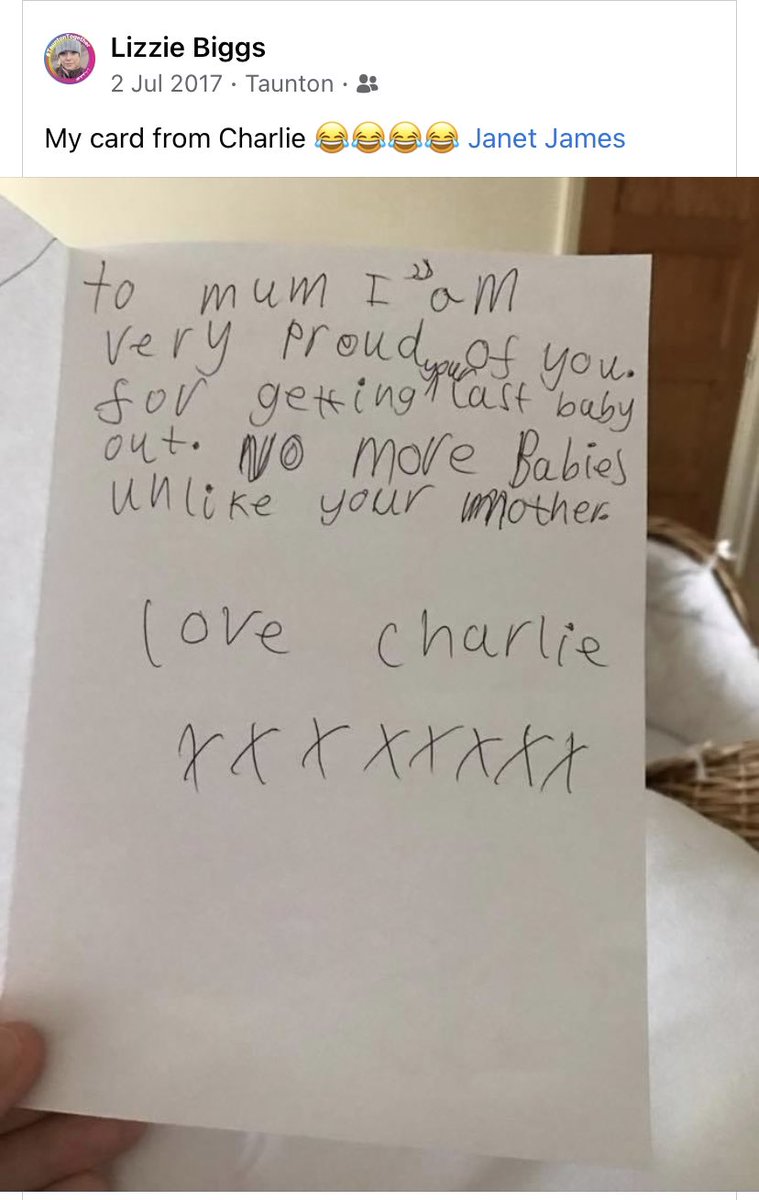 Lizzie Biggs
2 Jul 2017 · Taunton ·
My card from Charlie 😂😂😂😂 Janet James
to mum I "am
very proud of you.
for getting your last baby
out. NO more Babies
unlike your mother.
love charlie
xxx xxxxx